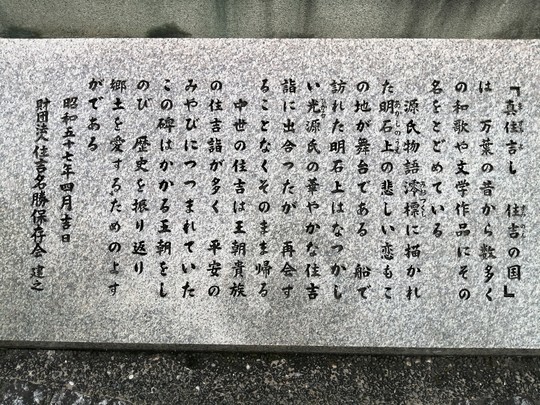 『真住吉し　住吉の国』
は　万葉の昔から数多く
の和歌や文学作品にその
名をとどめている
源氏物語澪標に描かれ
た明石上の悲しい恋もこ
の地が舞台である　船で
訪れた明石上はなつかし
い光源氏の華やかな住吉
詣に出合つたが　再会す
ることなくそのまま帰る
中世の住吉は王朝貴族
の住吉詣が多く　平安の
みやびにつつまれていた
この碑はかかる王朝をし
のび　歴史を振り返り
郷土を愛するためのよす
がである
昭和五十七年四月吉日
財団法人住吉名勝保存会　建之